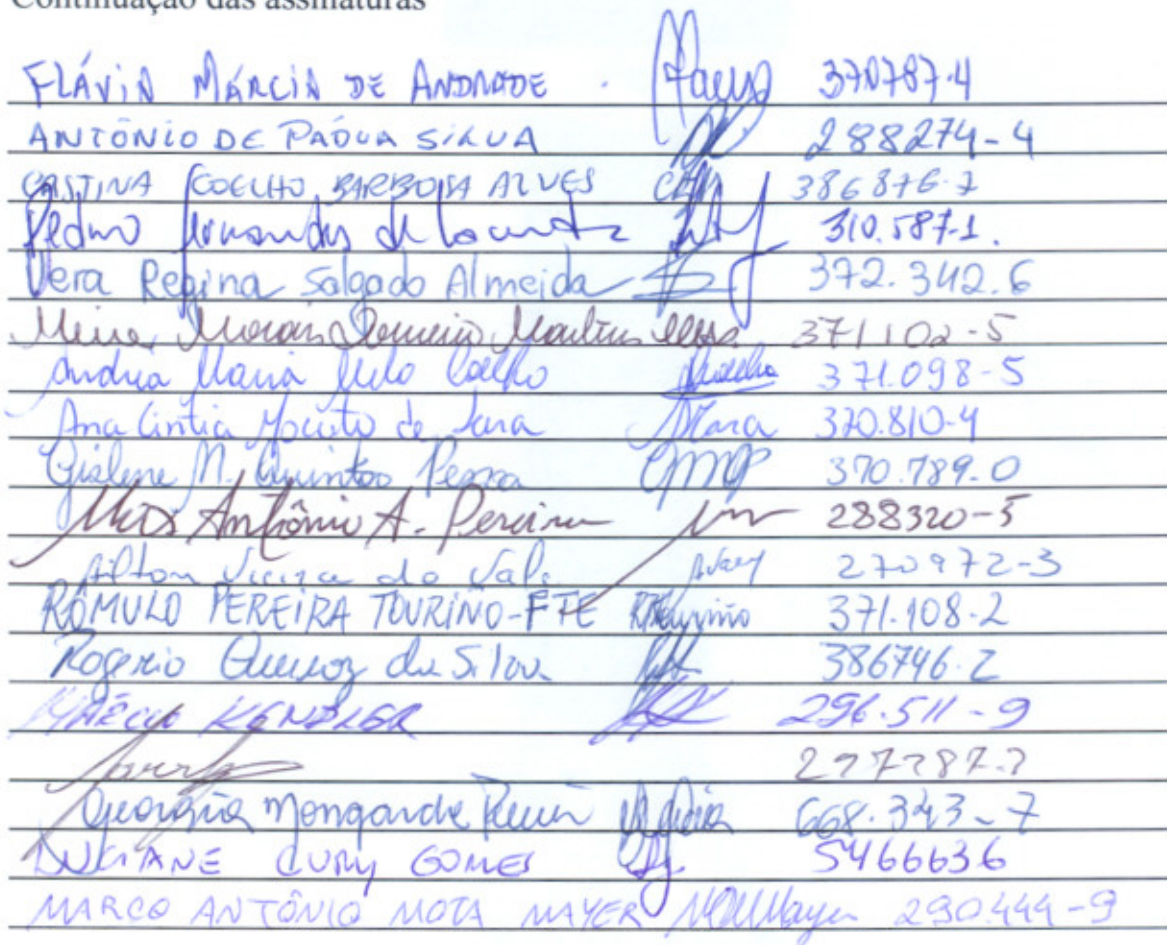 Continuação das assinaturas
FLÁVIA MÁRCIA DE ANDRADE 370787-4
ANTÔNIO DE PÁDUA SILVA 288274-4
CRISTINA COELHO BARBOSA ALVES 386876-7
Pedro Fernandes de 310.587-1.
Vera Regina Salgado Almeida 372.342.6
Morais Martins 371102-5
Andréa Maria Melo Coelho 371.098-5
Ana Cintia de 370.810-4
Gislene M. Quintão Pessoa GMQP 370.789.0
Antônio A. Pereira 288320-5
Ailton Vieira do Vale 270972-3
RÔMULO PEREIRA TOURINO-FTE RTourino 371.108-2
Rogério Queiroz da Silva 386746.2
KENDLER 296.511-9
Georgia 668.343-7
LUCIANE CURY GOMES 5466636
MARCO ANTÔNIO MOTA MAYER 290.444-9